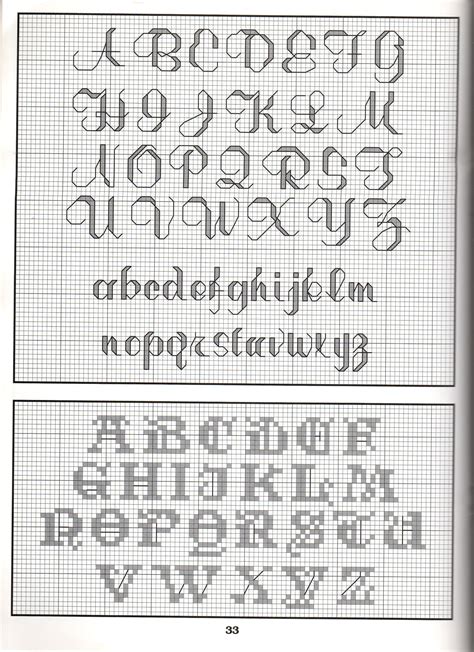 ABCDEFG
HIJKLM
NOPQRST
UVWXYZ
abcdefghijklm
nopqrstuvwxyz
ABCDEF
GHIJKLM
NOPQRSTU
VWXYZ
33